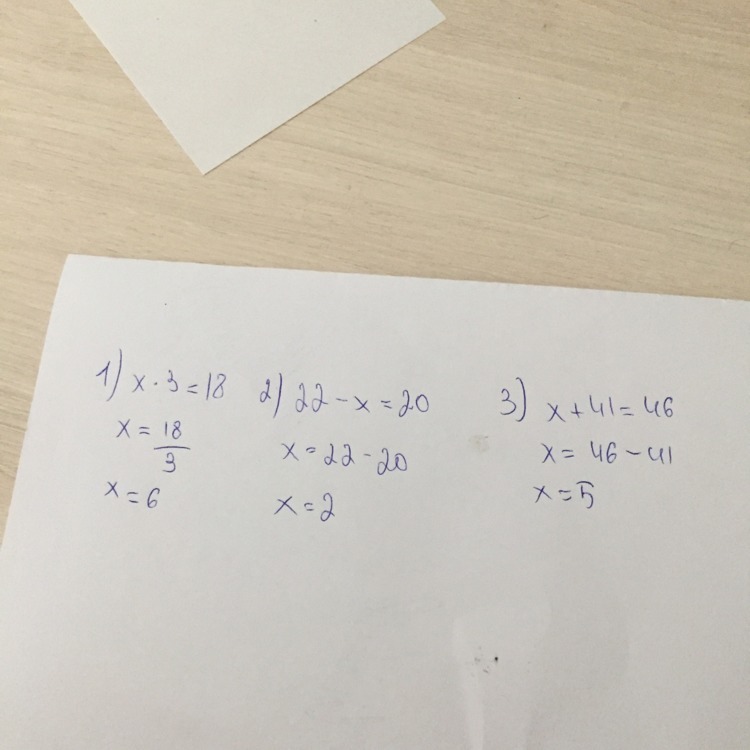 1) x · 3 = 18
x = 18/3
x = 6
2) 22 - x = 20
x = 22 - 20
x = 2
3) x + 41 = 46
x = 46 - 41
x = 5